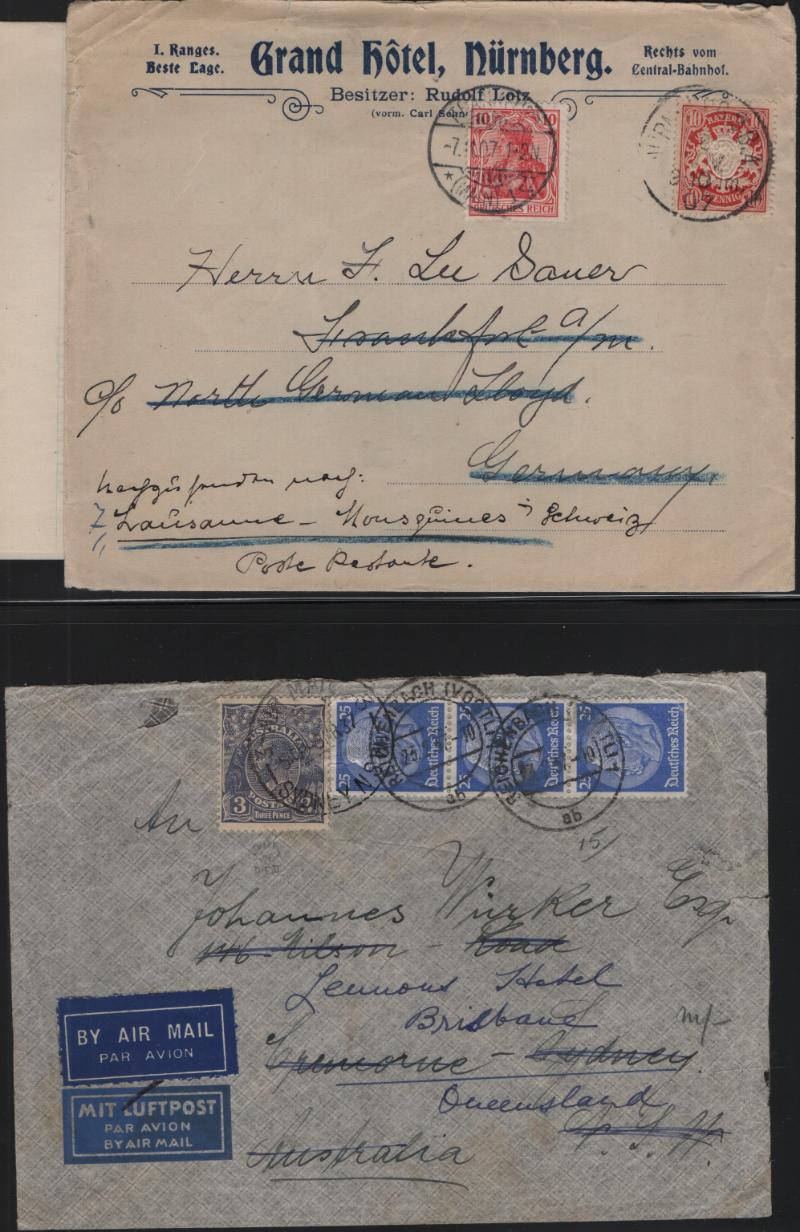 I. Ranges.
Beste Lage.
Grand Hôtel, Nürnberg.
Rechts vom
Central-Bahnhof.
Besitzer: Rudolf Lotz
(vorm. Carl
10 10
DEUTSCHES REICH
-7.11.07.1-2N.
10 BAYERN
PFENNIG
07
Herrn F. Lee Sauer
Frankfurt a/m.
c/o North German Lloyd.
Germany
Nachzusenden nach:
Lausanne - Mousquines Schweiz
Poste Restante.
AUSTRALIA
3 POSTAGE
THREE PENCE
25 25 Deutsches Reich
25 25 Deutsches Reich
25 25 Deutsches Reich
REICHENBACH (VOGTL)
ab
REICHENBACH
ab
An
15/
Johannes Wirker Esq
Wilson - Road
Lennons Hotel
Brisbane
BY AIR MAIL
PAR AVION
Cremorne - Sydney.
Queensland
MIT LUFTPOST
PAR AVION
BY AIR MAIL
Australia